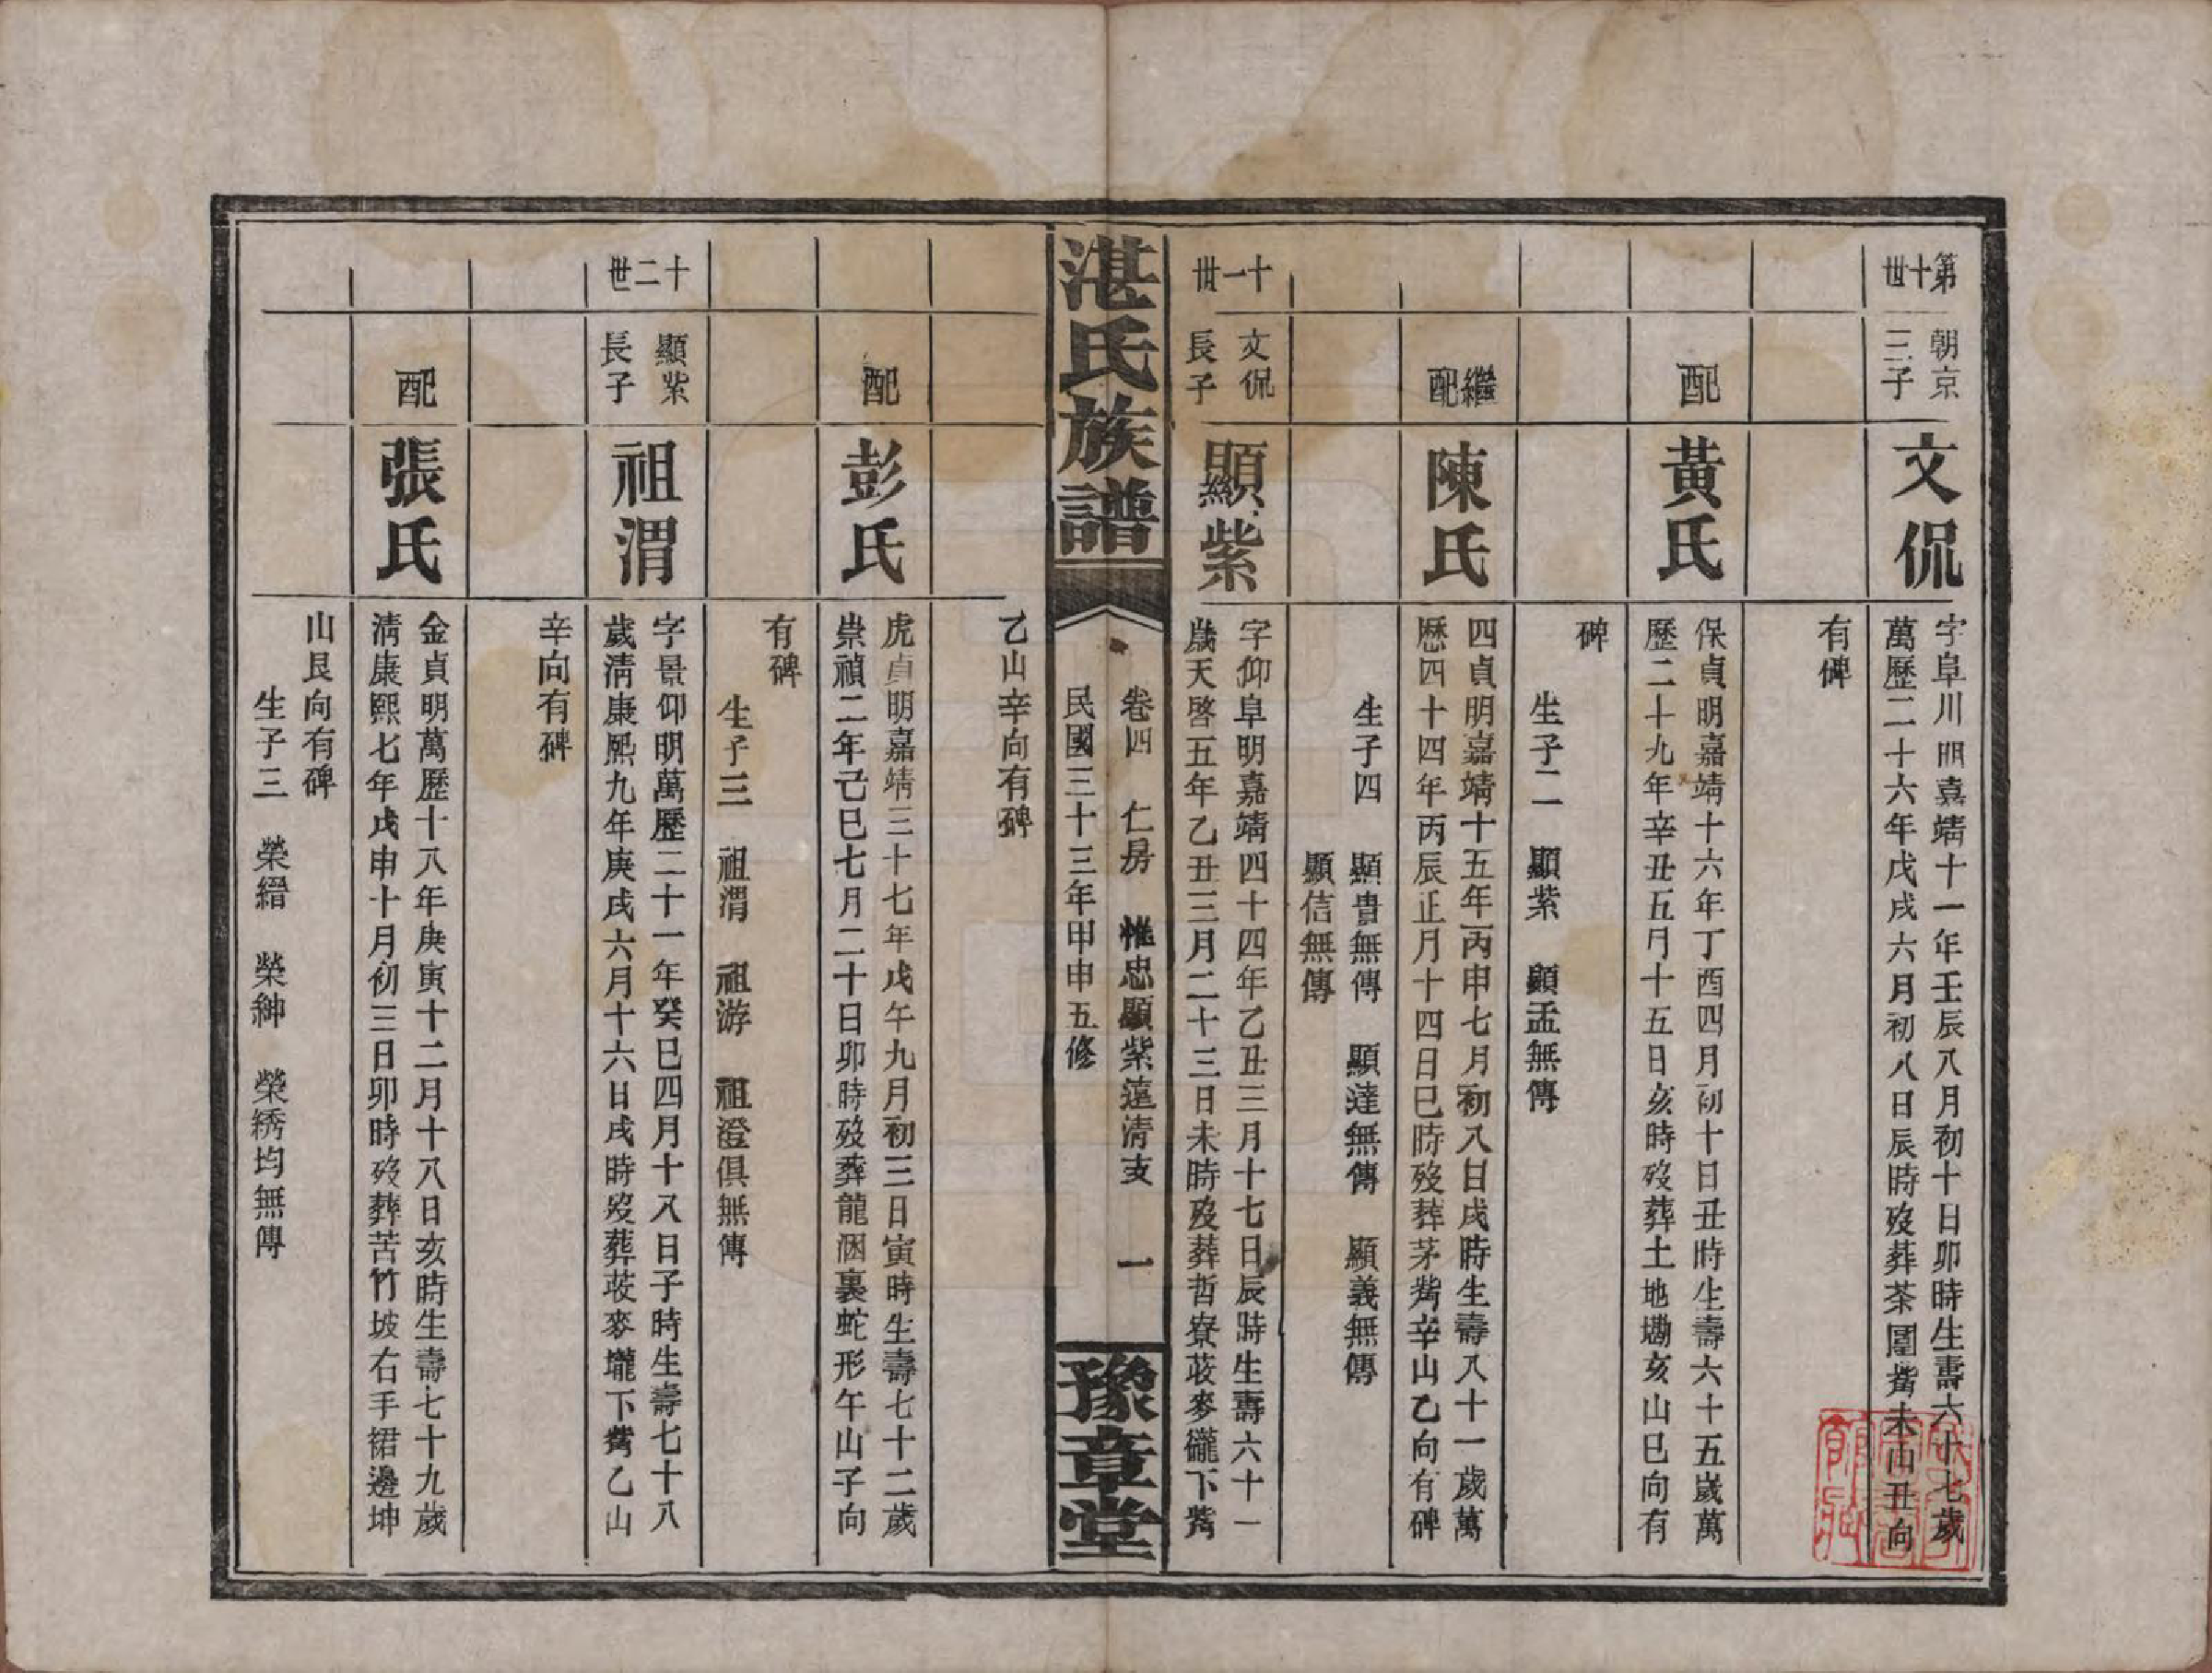 第十世
朝京
三子
文侃
字阜川明嘉靖十一年壬辰八月初十日卯時生壽六十七歲
萬歷二十六年戊戌六月初八日辰時歿葬茶園嘴未山丑向
有碑
配
黃氏
保貞明嘉靖十六年丁酉四月初十日丑時生壽六十五歲萬
歷二十九年辛丑五月十五日亥時歿葬土地墈亥山巳向有
碑
生子二 顯紫 顯孟無傳
繼配
陳氏
四貞明嘉靖十五年丙申七月初八日戌時生壽八十一歲萬
歷四十四年丙辰正月十四日巳時歿葬茅嘴辛山乙向有碑
生子四 顯貴無傳 顯達無傳 顯義無傳
顯信無傳
十一世
文侃
長子
顯紫
字仰阜明嘉靖四十四年乙丑三月十七日辰時生壽六十一
歲天啓五年乙丑三月二十三日未時歿葬哲寮荍麥礲下嘴
湛氏族譜
卷四 仁房 惟忠顯紫蓮清支 一
民國三十三年甲申五修
豫章堂
乙山辛向有碑
配
彭氏
虎貞明嘉靖三十七年戊午九月初三日寅時生壽七十二歲
崇禎二年己巳七月二十日卯時歿葬龍洇裏蛇形午山子向
有碑
生子三 祖渭 祖游 祖澄俱無傳
十二世
顯紫
長子
祖渭
字景仰明萬歷二十一年癸巳四月十八日子時生壽七十八
歲淸康熙九年庚戌六月十六日戌時歿葬荍麥壠下嘴乙山
辛向有碑
配
張氏
金貞明萬歷十八年庚寅十二月十八日亥時生壽七十九歲
淸康熙七年戊申十月初三日卯時歿葬苦竹坡右手裙邊坤
山艮向有碑
生子三 榮縉 榮紳 榮綉均無傳